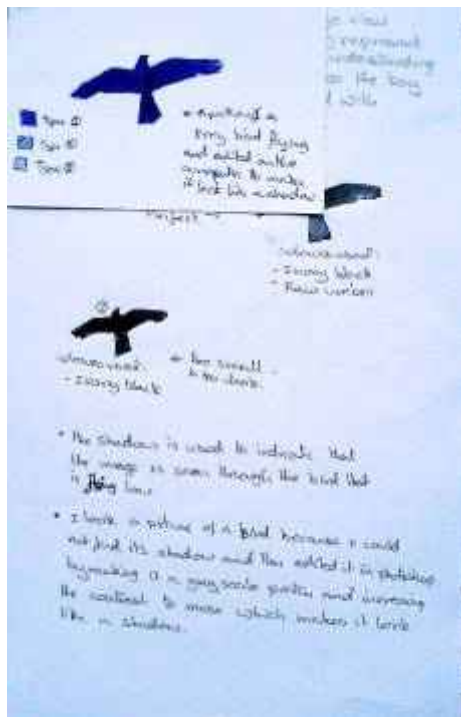 view
foreground
understanding
the key
Tone ①
Tone ②
Tone ③
a
bird flying
and edited on the
computer to make
it look like a shadow
Perfect →
colours used:
- Ivory black
- Raw umber
②
colours used:
- Ivory black
← too small
& too dark
• The shadow is used to indicate that
the image is seen through the bird that
is flying
• I took a picture of a bird because I could
not find its shadow and then edited it in photoshop
by making it a grey scale picture and increasing
the contrast to make which makes it look
like a shadow.